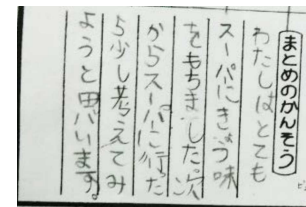 まとめのかんそう
わたしはとても
スーパにきょう味
をもちました次
からスーパに行った
ら少し考えてみ
ようと思います。